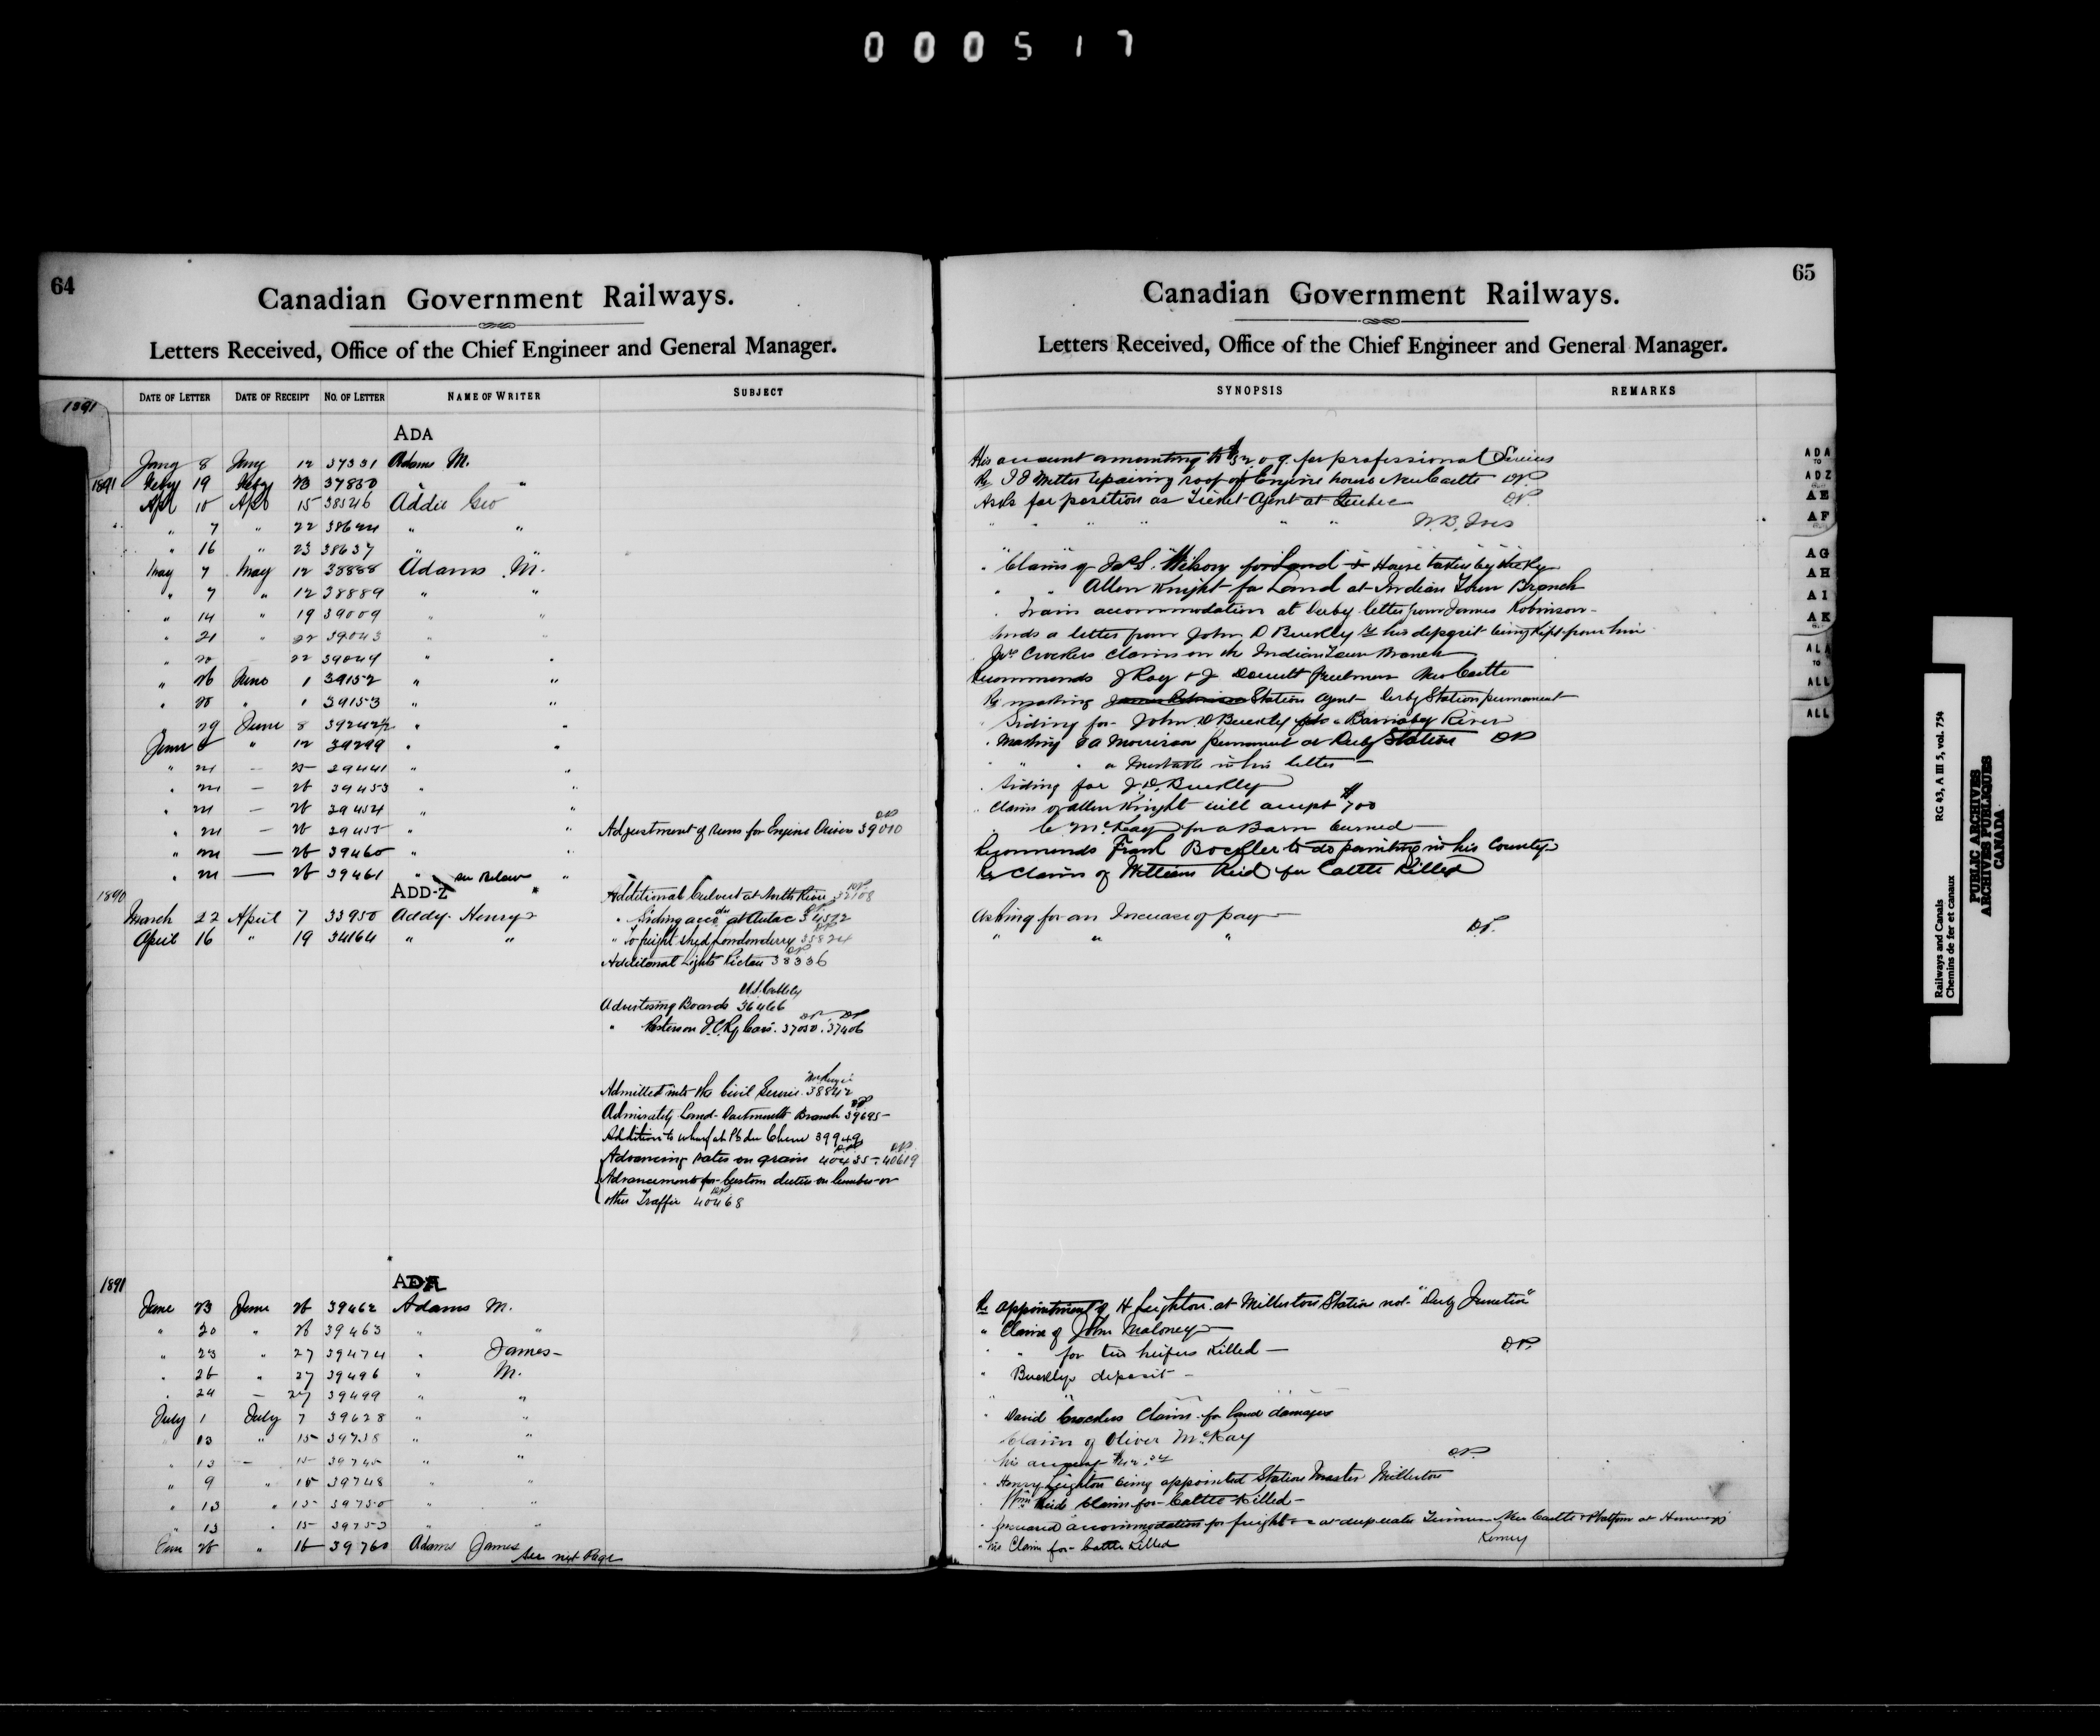 000517
64
Canadian Government Railways.
Letters Received, Office of the Chief Engineer and General Manager.
DATE OF LETTER DATE OF RECEIPT NO. OF LETTER NAME OF WRITER SUBJECT
1891
ADA
Jany 8 Jany 12 37331 Adams M.
1891 Feby 19 Feby 23 37830 " "
Apl 10 Apl 15 38546 Addie Geo
" 7 " 22 "
" 16 " 23 38637 " "
May 7 May 12 38888 Adams M.
" 7 " 12 38889 " "
" 14 " 19 39009 " "
" 21 " 22 39043 " "
" 20 22 39049 " "
" 26 June 1 39152 " "
" 28 " 1 39153 " "
29 June 8 39242½ " "
June " 12 39299 " "
" 21 — 25 39441 " "
" 21 — 26 39453 " "
" 21 — 26 39454 " "
" 21 — 26 39455 " " Adjustment of Runs for Engine Drivers 39010
" 21 — 26 39460 "
" 21 — 26 39461 " See Below "
1890 ADD-Z Additional Culvert at North River 32108
March 22 April 7 33950 Addy Henry " Siding acco at Aulac 34572
April 16 " 19 34164 " " " To freight shed Londonderry 35824
Additional Lights Pictou 38336
Advertising Boards 36466
" Posters on I.C.Ry Cars. 37030. 37406
Admitted into the Civil Service. 38842
Admiralty Land - Dartmouth Branch 39695 -
Addition to wharf at Pt du Chene 39949
Advancing rates on grain 40435 - 40619
Advancements for Custom duties on Lumber or
other Traffic 40468
1891 ADA
June 23 June 26 39462 Adams M.
" 20 " 26 39463 " "
" 23 " 27 39474 " James -
" 26 " 27 39496 " M.
" 24 — 27 39499 " "
July 1 July 7 39628 " "
13 " 15 39738 " "
" 13 — 15 39745 " "
" 9 " 15 39748 " "
" 13 " 15 39750 " "
" 13 " 15 39753 " "
June 26 " 16 39760 Adams James
See next Page
65
Canadian Government Railways.
Letters Received, Office of the Chief Engineer and General Manager.
SYNOPSIS REMARKS
His account amounting to for professional Services
Re repairing roof of Engine house New Castle DP
Asks for position as Ticket Agent at Quebec DP
" " " " " W.B. Ives
" Claim of for Land & House taken by the Ry
" " Allen Knight for Land at Indian Town Branch
" Train accommodation at Derby letter from James Robinson -
Sends a letter from John D Buckley re his deposit being kept from him
Crockers Claim on the Indian Town Branch
Recommends J Roy & J New Castle
Re making Station Agent Derby Station permanent
" Siding for John D Buckley Barnaby River
" making Morrison permanent at Derby Station DP
" " " a mistake in his letter —
" Siding for J.D. Buckley
" Claim of Allen Knight will accept $700
McKay for a Barn burned —
Recommends Frank to do painting in his County
Re Claim of William Reid for Cattle Killed
Asking for an Increase of pay —
" " " DP.
Re appointment of H Leighton at Millerton Station not "Derby Junction"
" Claim of John Maloney —
" " for two heifers Killed — DP.
" Buckleys deposit -
" " " "
" David Crockers Claim for land damages
Claim of Oliver McKay
his DP.
" Henry Leighton being appointed Station Master Millerton
" Wm Reids Claim for Cattle Killed -
" accommodation for freight New Castle & Platform at
" his Claim for Cattle Killed
ADA
TO
ADZ
AE
AF
AG
AH
AI
AK
ALA
TO
ALL
ALL
Railways and Canals RG 43, A III 5, vol. 754
Chemins de fer et canaux
PUBLIC ARCHIVES
ARCHIVES PUBLIQUES
CANADA